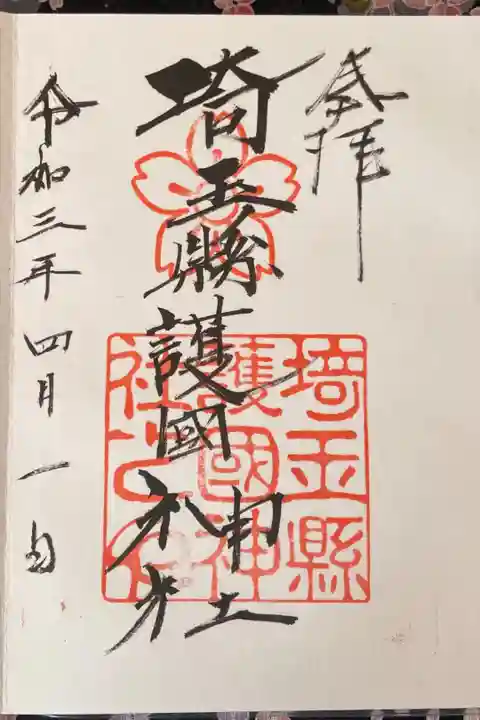 奉拝
埼玉縣護國神社
令和三年四月一日
埼玉縣
護國神
社之印